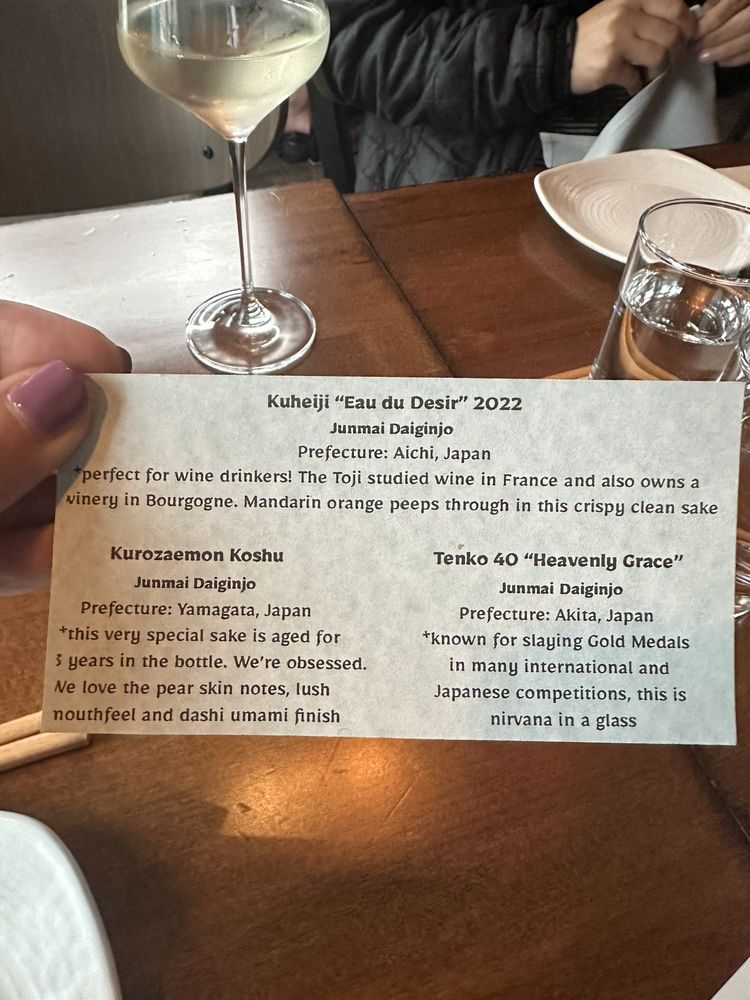 Kuheiji “Eau du Desir” 2022
Junmai Daiginjo
Prefecture: Aichi, Japan
*perfect for wine drinkers! The Toji studied wine in France and also owns a
winery in Bourgogne. Mandarin orange peeps through in this crispy clean sake
Kurozaemon Koshu
Junmai Daiginjo
Prefecture: Yamagata, Japan
*this very special sake is aged for
3 years in the bottle. We’re obsessed.
We love the pear skin notes, lush
mouthfeel and dashi umami finish
Tenko 40 “Heavenly Grace”
Junmai Daiginjo
Prefecture: Akita, Japan
*known for slaying Gold Medals
in many international and
Japanese competitions, this is
nirvana in a glass